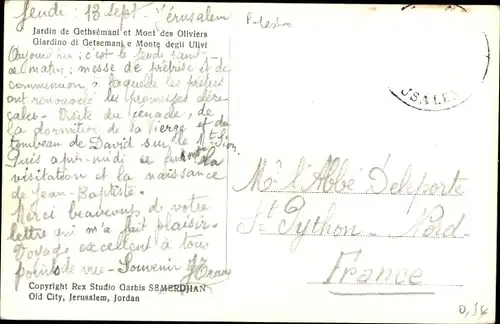 Jeudi : 13 Sept - Jérusalem
Jardin de Gethsémani et Mont des Oliviers
Giardino di Getsemani e Monte degli Ulivi
Aujourd'hui : c'est le Jeudi saint -
ce matin : messe de prêtrise et de
communion à laquelle les prêtres
ont renouvelé les promesses
Visite du cénacle, de
la dormition de la Vierge et du
tombeau de David sur le Mt Sion.
Puis après-midi ce la
visitation et la naissance
de Jean-Baptiste.
Merci beaucoup de votre
lettre qui m'a fait plaisir.
Voyage excellent à tous
points de vue - Souvenir
Copyright Rex Studio Garbis SEMERDJIAN
Old City, Jerusalem, Jordan
JSALEM
Mr l'Abbé Deleporte
St Python - Nord -
France